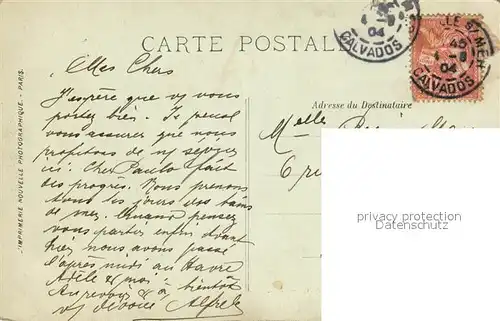 CARTE POSTALE
CALVADOS
04
LLE S/ MER
45
4 - 8
04
CALVADOS
Adresse du Destinataire
Mes Chers
J'espère que vs vous
portez bien. Je peux
vous assurer que nous
profitons de ns
ici. Cher Paulo fait
des progrès. Nous prenons
tous les jours des bains
de mer. Quand pensez
vous partir enfin
hier nous avons passé
l'après midi au Havre
Adèle & moi à bientôt
Au revoir &
vs dévoué Alfred
Melle
privacy protection
Datenschutz
L'IMPRIMERIE NOUVELLE PHOTOGRAPHIQUE. - PARIS.